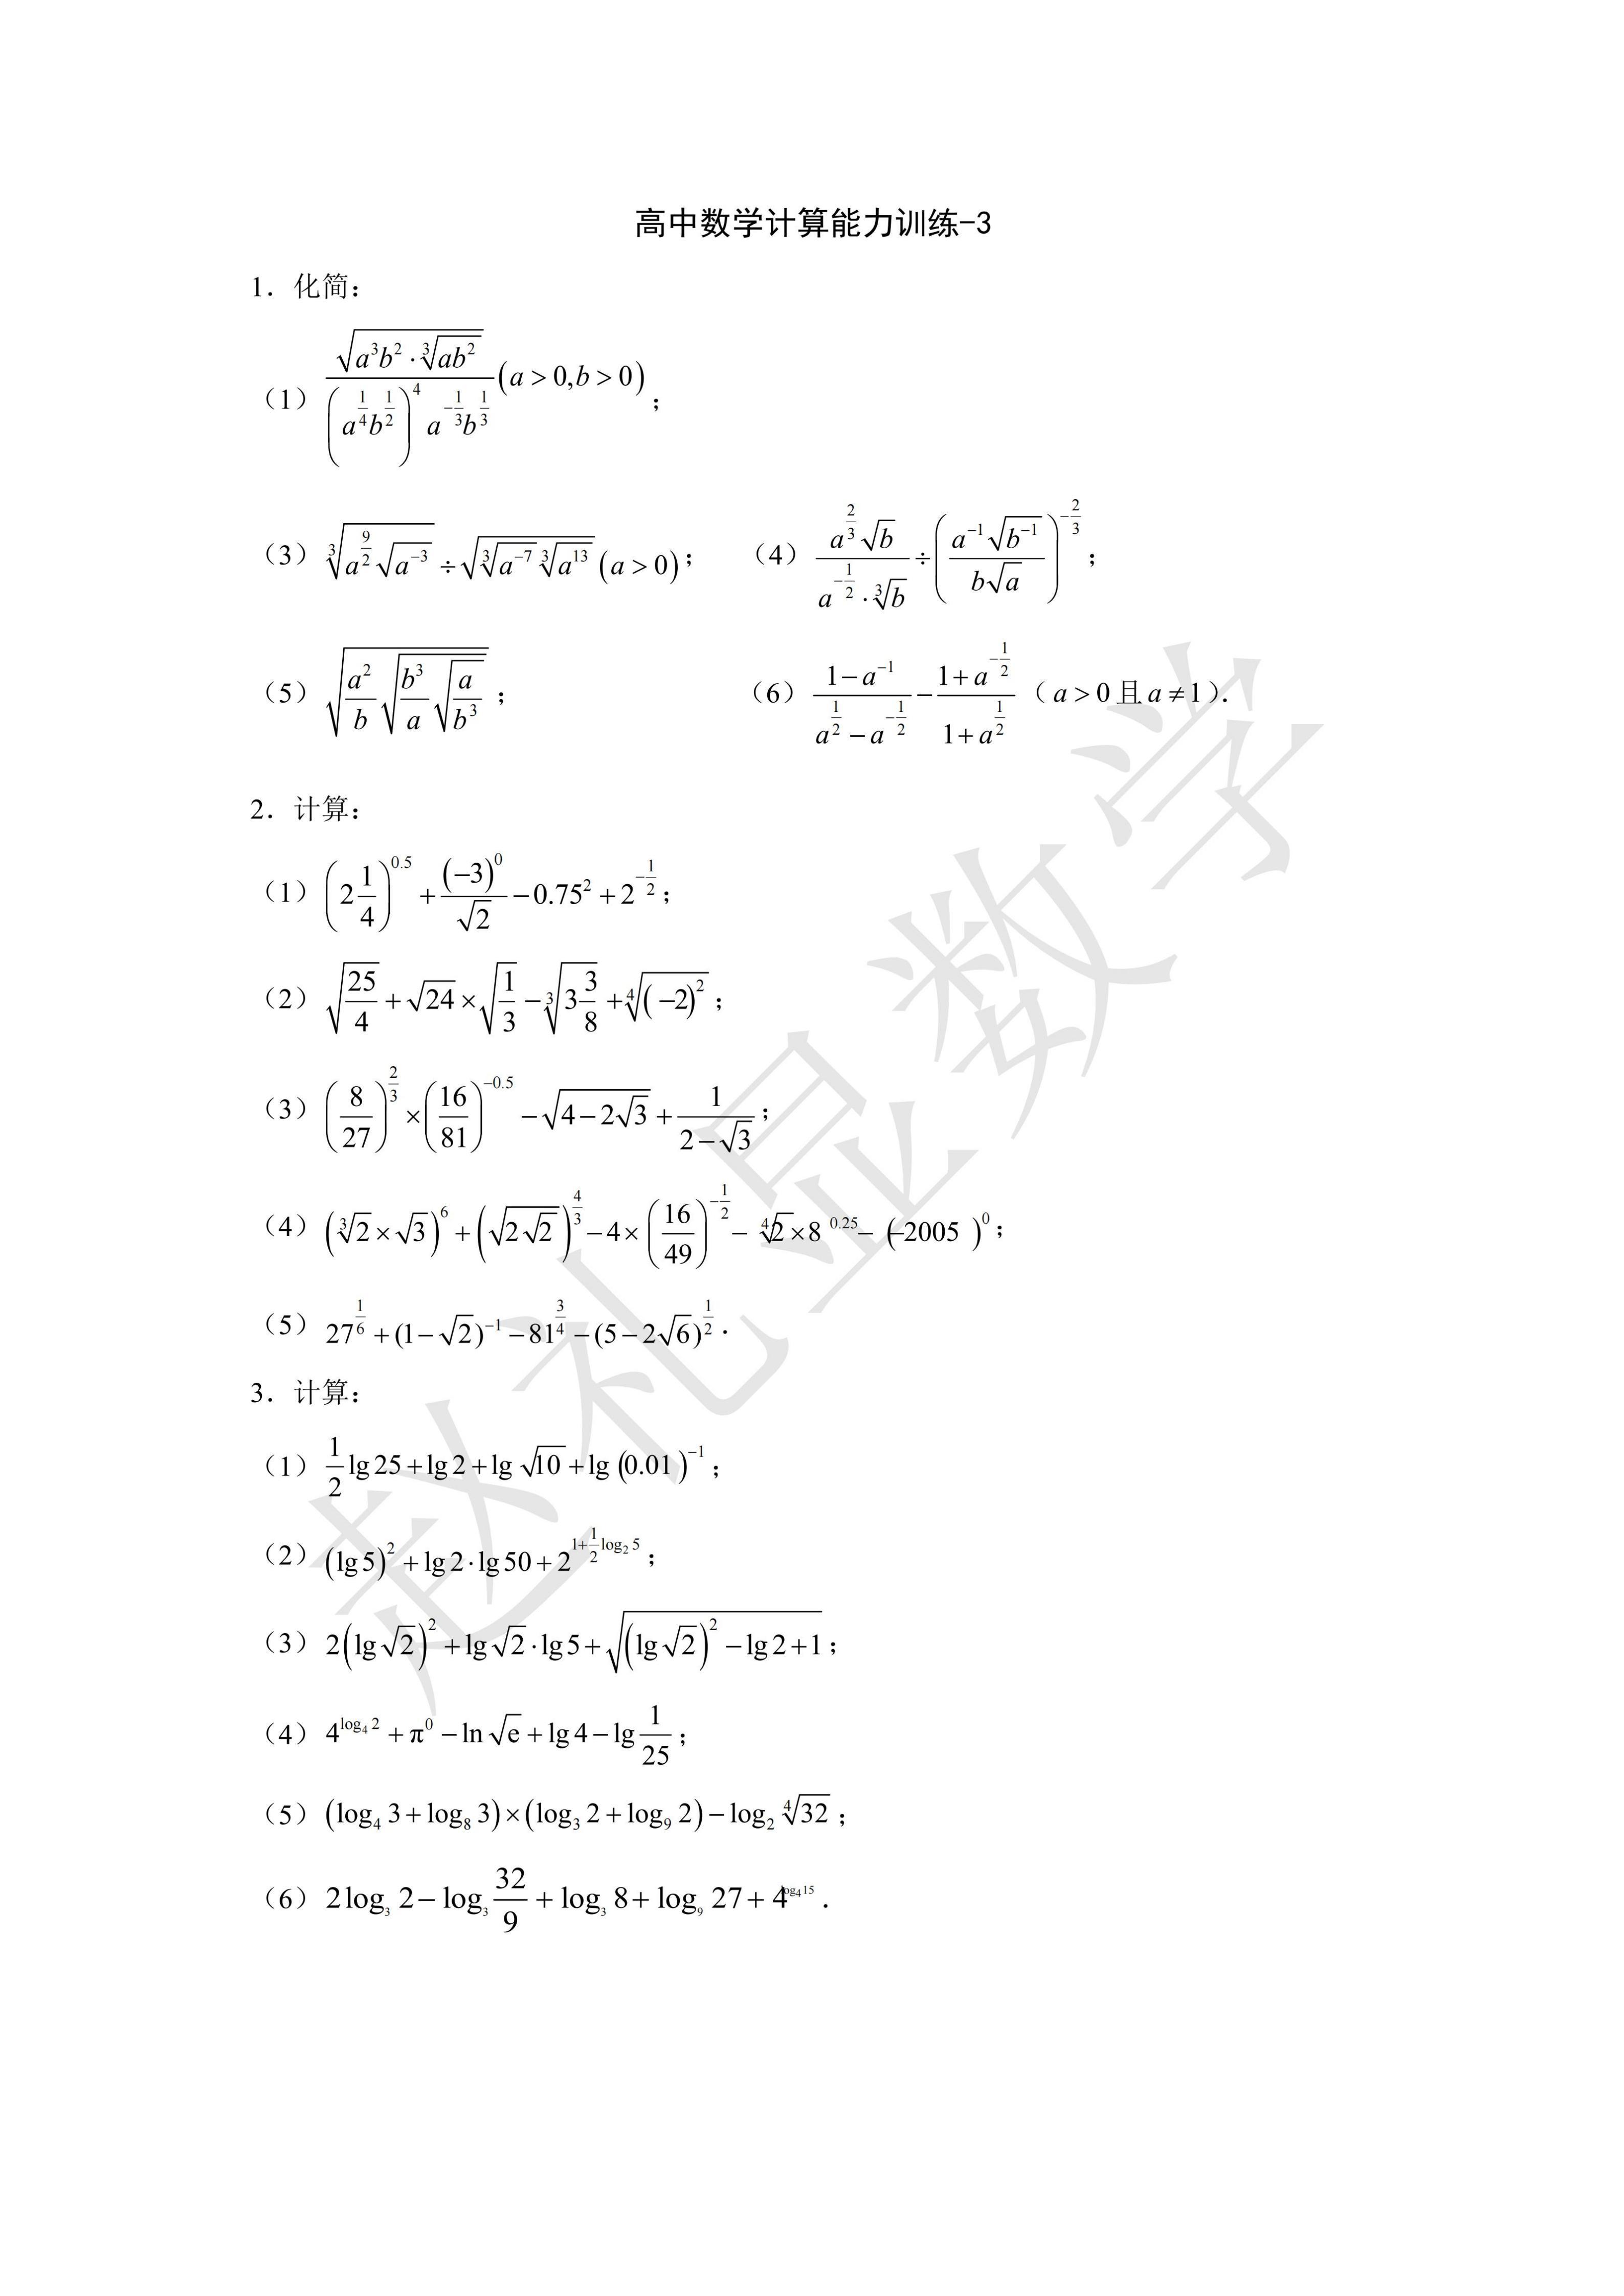 高中数学计算能力训练-3
1. 化简：
（1） \frac{\sqrt{a^3b^2\cdot\sqrt[3]{ab^2}}}{\left(a^{\frac{1}{4}}b^{\frac{1}{2}}\right)^4a^{-\frac{1}{3}}b^{\frac{1}{3}}}(a>0,b>0)；
（3） \sqrt[3]{a^{\frac{9}{2}}\sqrt{a^{-3}}}÷\sqrt{\sqrt[3]{a^{-7}}\sqrt[3]{a^{13}}}(a>0)； （4） \frac{a^{\frac{2}{3}}\sqrt{b}}{a^{-\frac{1}{2}}\cdot\sqrt[3]{b}}÷\left(\frac{a^{-1}\sqrt{b^{-1}}}{b\sqrt{a}}\right)^{-\frac{2}{3}}；
（5） \sqrt{\frac{a^2}{b}\sqrt{\frac{b^3}{a}\sqrt{\frac{a}{b^3}}}}； （6） \frac{1-a^{-1}}{a^{\frac{1}{2}}-a^{-\frac{1}{2}}}-\frac{1+a^{-\frac{1}{2}}}{1+a^{\frac{1}{2}}}（a>0且a≠1）.
2. 计算：
（1） \left(2\frac{1}{4}\right)^{0.5}+\frac{(-3)^0}{\sqrt{2}}-0.75^2+2^{-\frac{1}{2}}；
（2） \sqrt{\frac{25}{4}}+\sqrt{24}×\sqrt{\frac{1}{3}}-\sqrt[3]{3\frac{3}{8}}+\sqrt[4]{(-2)^2}；
（3） \left(\frac{8}{27}\right)^{\frac{2}{3}}×\left(\frac{16}{81}\right)^{-0.5}-\sqrt{4-2\sqrt{3}}+\frac{1}{2-\sqrt{3}}；
（4） (\sqrt[3]{2}×\sqrt{3})^6+\left(\sqrt{2\sqrt{2}}\right)^{\frac{4}{3}}-4×\left(\frac{16}{49}\right)^{-\frac{1}{2}}-\sqrt[4]{2}×8^{0.25}-(-2005)^0；
（5） 27^{\frac{1}{6}}+(1-\sqrt{2})^{-1}-81^{\frac{3}{4}}-(5-2\sqrt{6})^{\frac{1}{2}}.
3. 计算：
（1） \frac{1}{2}lg25+lg2+lg\sqrt{10}+lg(0.01)^{-1}；
（2） (lg5)^2+lg2·lg50+2^{1+\frac{1}{2}log_2 5}；
（3） 2(lg\sqrt{2})^2+lg\sqrt{2}·lg5+\sqrt{(lg\sqrt{2})^2-lg2+1}；
（4） 4^{log_4 2}+π^0-ln\sqrt{e}+lg4-lg\frac{1}{25}；
（5） (log_4 3+log_8 3)×(log_3 2+log_9 2)-log_2\sqrt[4]{32}；
（6） 2log_3 2-log_3\frac{32}{9}+log_3 8+log_9 27+4^{log_4 15}.
赵礼显数学